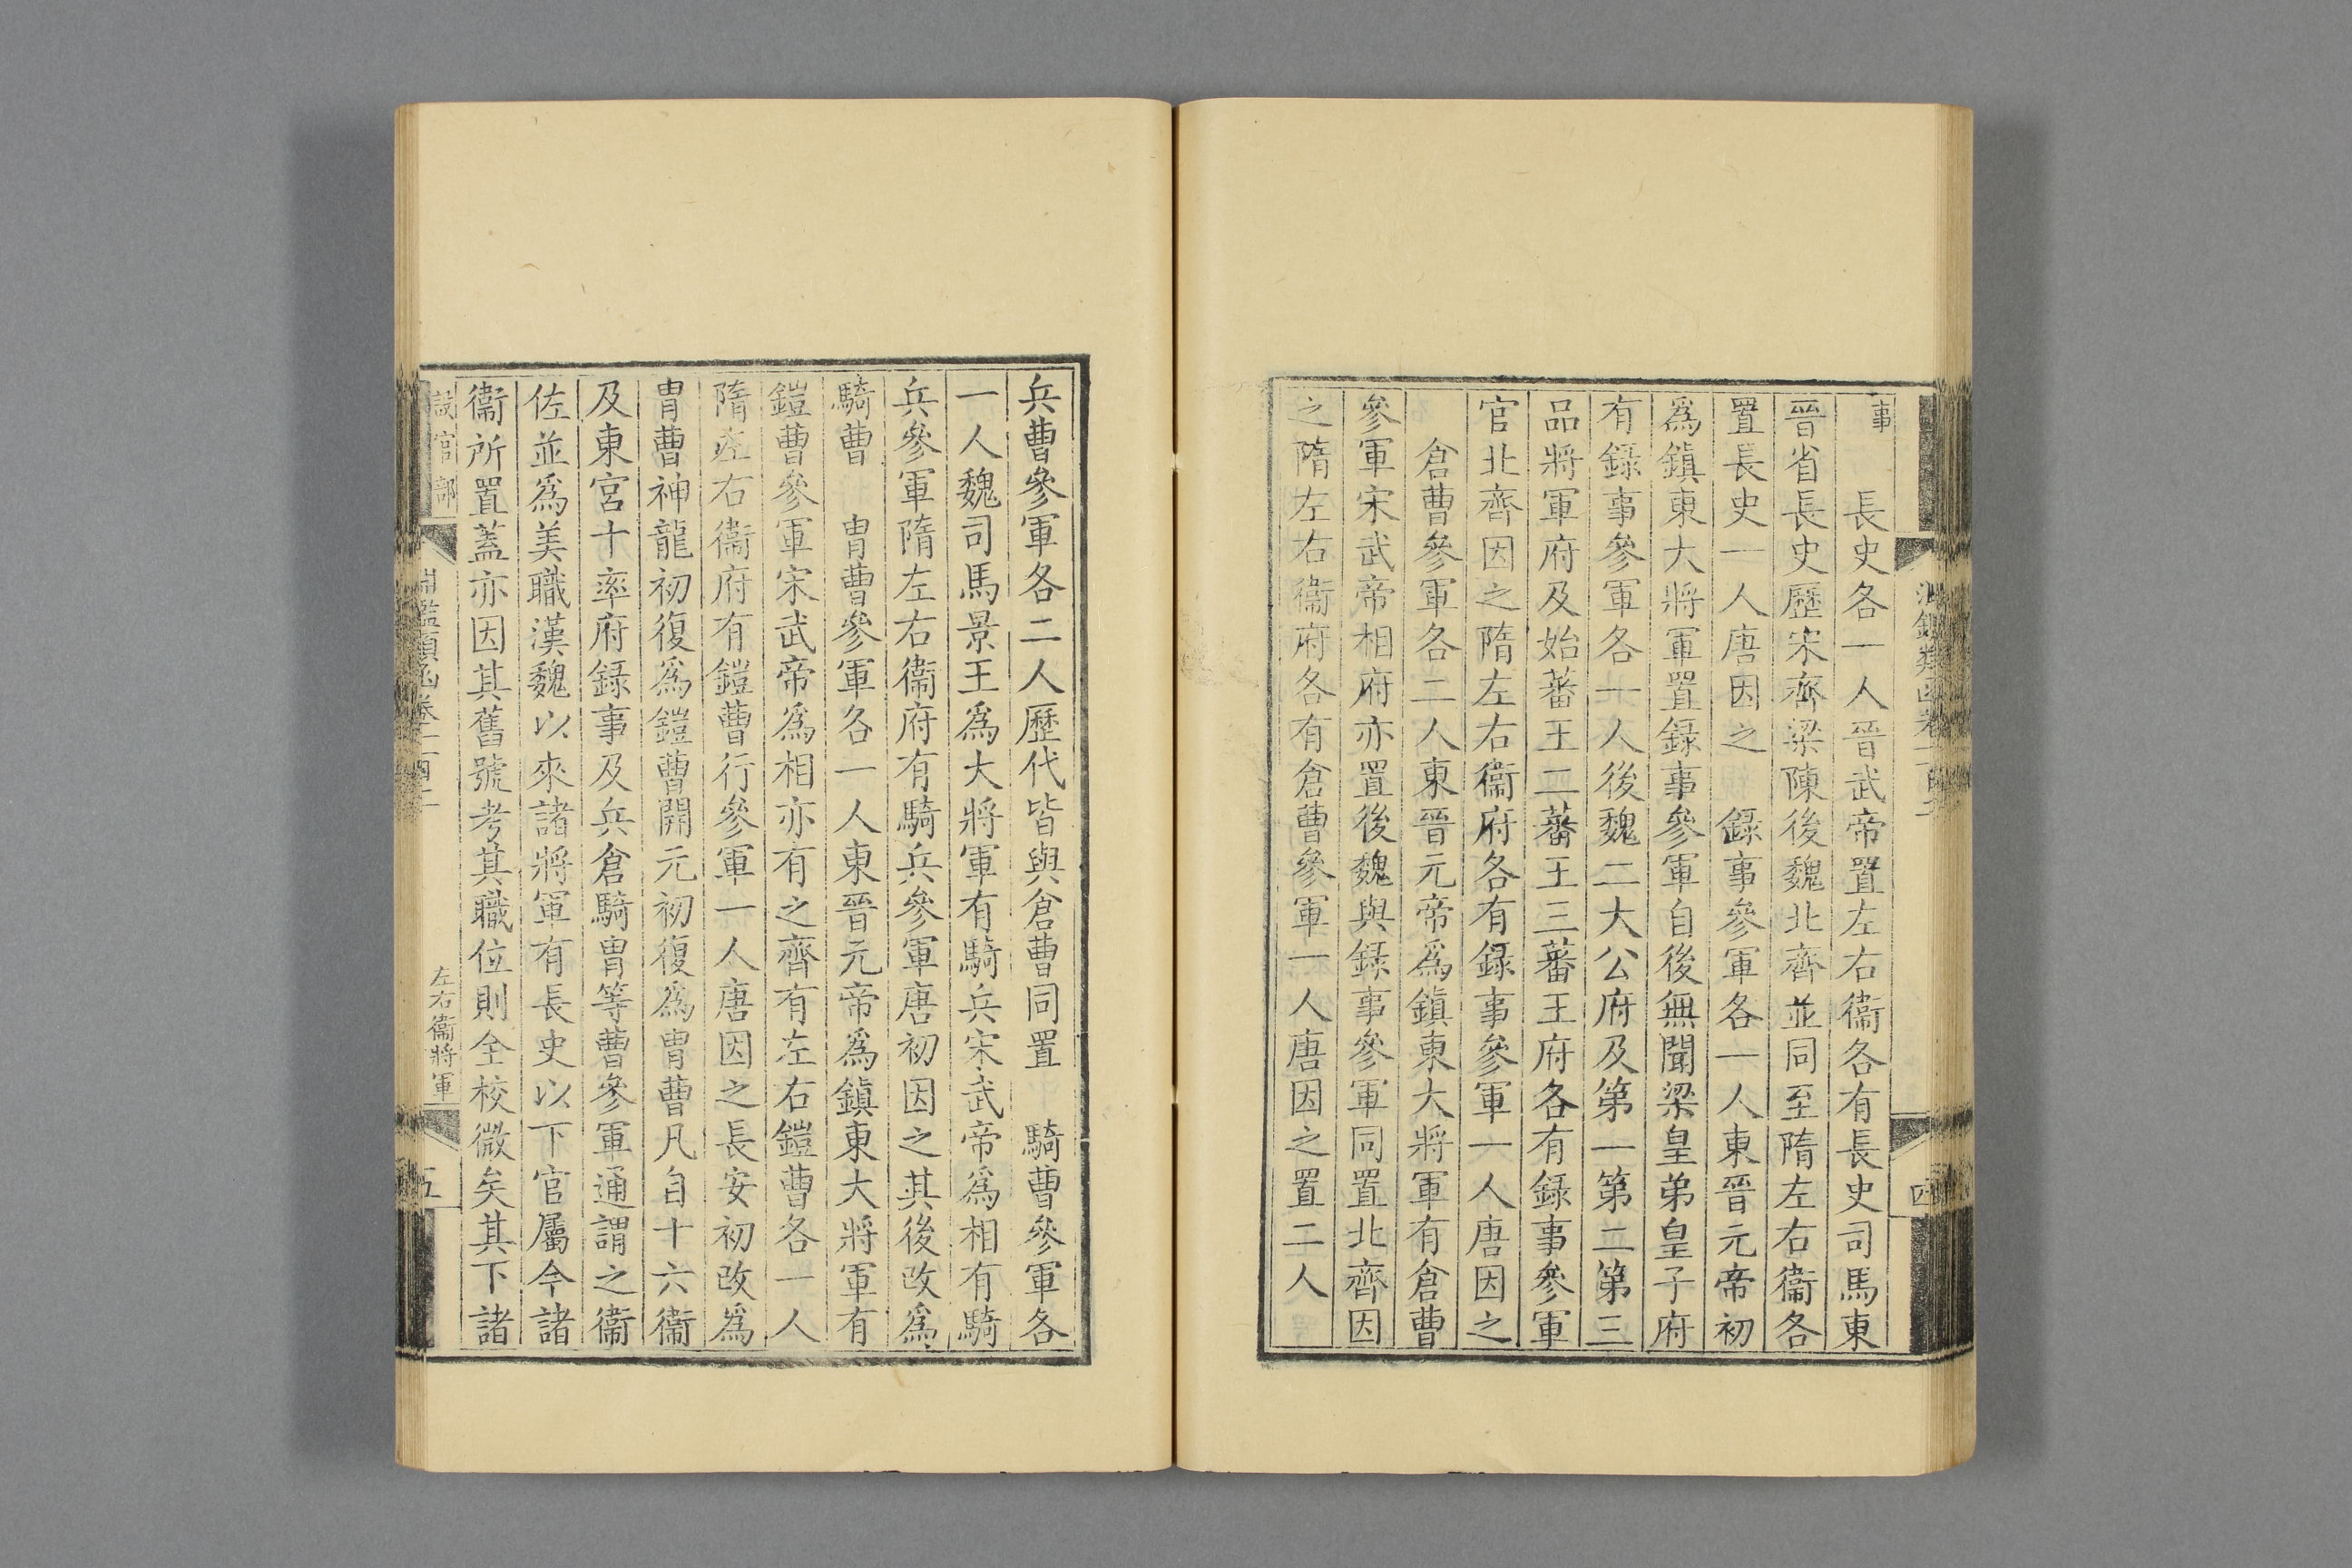 事　長史各一人晉武帝置左右衞各有長史司馬東
晉省長史歷宋齊梁陳後魏北齊並同至隋左右衞各
置長史一人唐因之　錄事參軍各一人東晉元帝初
爲鎮東大將軍置錄事參軍自後無聞梁皇弟皇子府
有錄事參軍各一人後魏二大公府及第一第二第三
品將軍府及始蕃王二蕃王三蕃王府各有錄事參軍
官北齊因之隋左右衞府各有錄事參軍一人唐因之
倉曹參軍各二人東晉元帝爲鎮東大將軍有倉曹
參軍宋武帝相府亦置後魏與錄事參軍同置北齊因
之隋左右衞府各有倉曹參軍一人唐因之置二人
四
兵曹參軍各二人歷代皆與倉曹同置　騎曹參軍各
一人魏司馬景王爲大將軍有騎兵宋武帝爲相有騎
兵參軍隋左右衞府有騎兵參軍唐初因之其後改爲
騎曹　冑曹參軍各一人東晉元帝爲鎮東大將軍有
鎧曹參軍宋武帝爲相亦有之齊有左右鎧曹各一人
隋左右衞府有鎧曹行參軍一人唐因之長安初改爲
冑曹神龍初復爲鎧曹開元初復爲冑曹凡自十六衞
及東宮十率府錄事及兵倉騎冑等曹參軍通謂之衞
佐並爲美職漢魏以來諸將軍有長史以下官屬今諸
衞所置蓋亦因其舊號考其職位則全校微矣其下諸
設官部
左右衞將軍
五